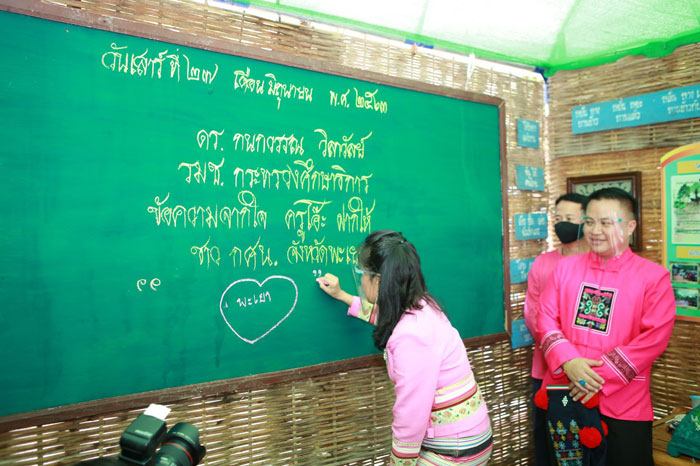 วันเสาร์ ที่ ๒๗ เดือน มิถุนายน พ.ศ. ๒๕๖๓
ดร. กนกวรรณ วิลาวัลย์
รมช. กระทรวงศึกษาธิการ
ข้อความจากใจ ครูโอ๊ะ ฝากให้
ชาว กศน. จังหวัดพะเยา
พะเยา